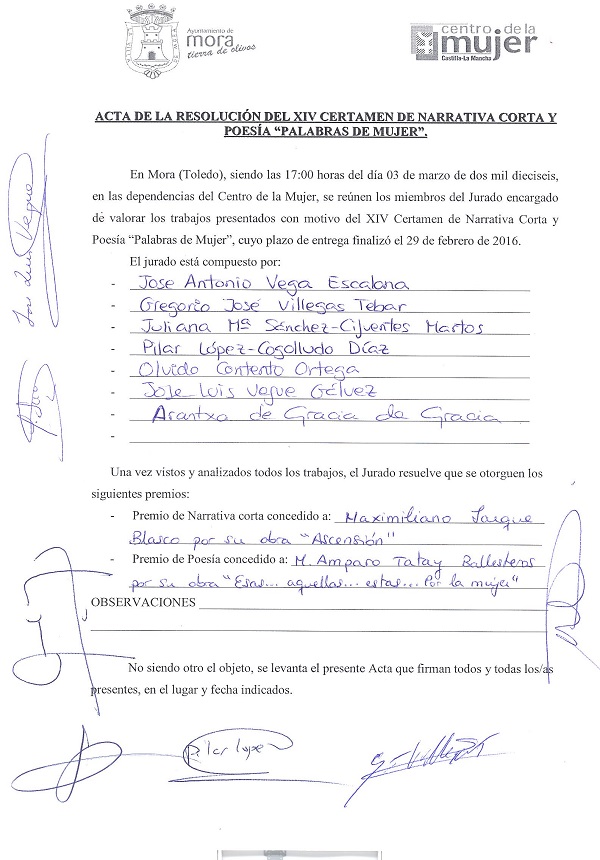 Ayuntamiento de
mora
tierra de olivos
centro de la
mujer
Castilla-La Mancha
ACTA DE LA RESOLUCIÓN DEL XIV CERTAMEN DE NARRATIVA CORTA Y
POESÍA “PALABRAS DE MUJER”.
En Mora (Toledo), siendo las 17:00 horas del día 03 de marzo de dos mil dieciseis,
en las dependencias del Centro de la Mujer, se reúnen los miembros del Jurado encargado
de valorar los trabajos presentados con motivo del XIV Certamen de Narrativa Corta y
Poesía “Palabras de Mujer”, cuyo plazo de entrega finalizó el 29 de febrero de 2016.
El jurado está compuesto por:
- Jose Antonio Vega Escalona
- Gregorio José Villegas Tebar
- Juliana Mª Sánchez-Cifuentes Martos
- Pilar López-Cogolludo Díaz
- Olvido Contento Ortega
- Jose Luis Vegue Gálvez
- Arantxa de Gracia de Gracia
-
Una vez vistos y analizados todos los trabajos, el Jurado resuelve que se otorguen los
siguientes premios:
- Premio de Narrativa corta concedido a: Maximiliano Jarque
Blasco por su obra "Ascensión"
- Premio de Poesía concedido a: M. Amparo Tatay Ballesteros
por su obra "Esas... aquellas... estas... Por la mujer"
OBSERVACIONES
No siendo otro el objeto, se levanta el presente Acta que firman todos y todas los/as
presentes, en el lugar y fecha indicados.
Jose Luis Vegue
Pilar Lopez